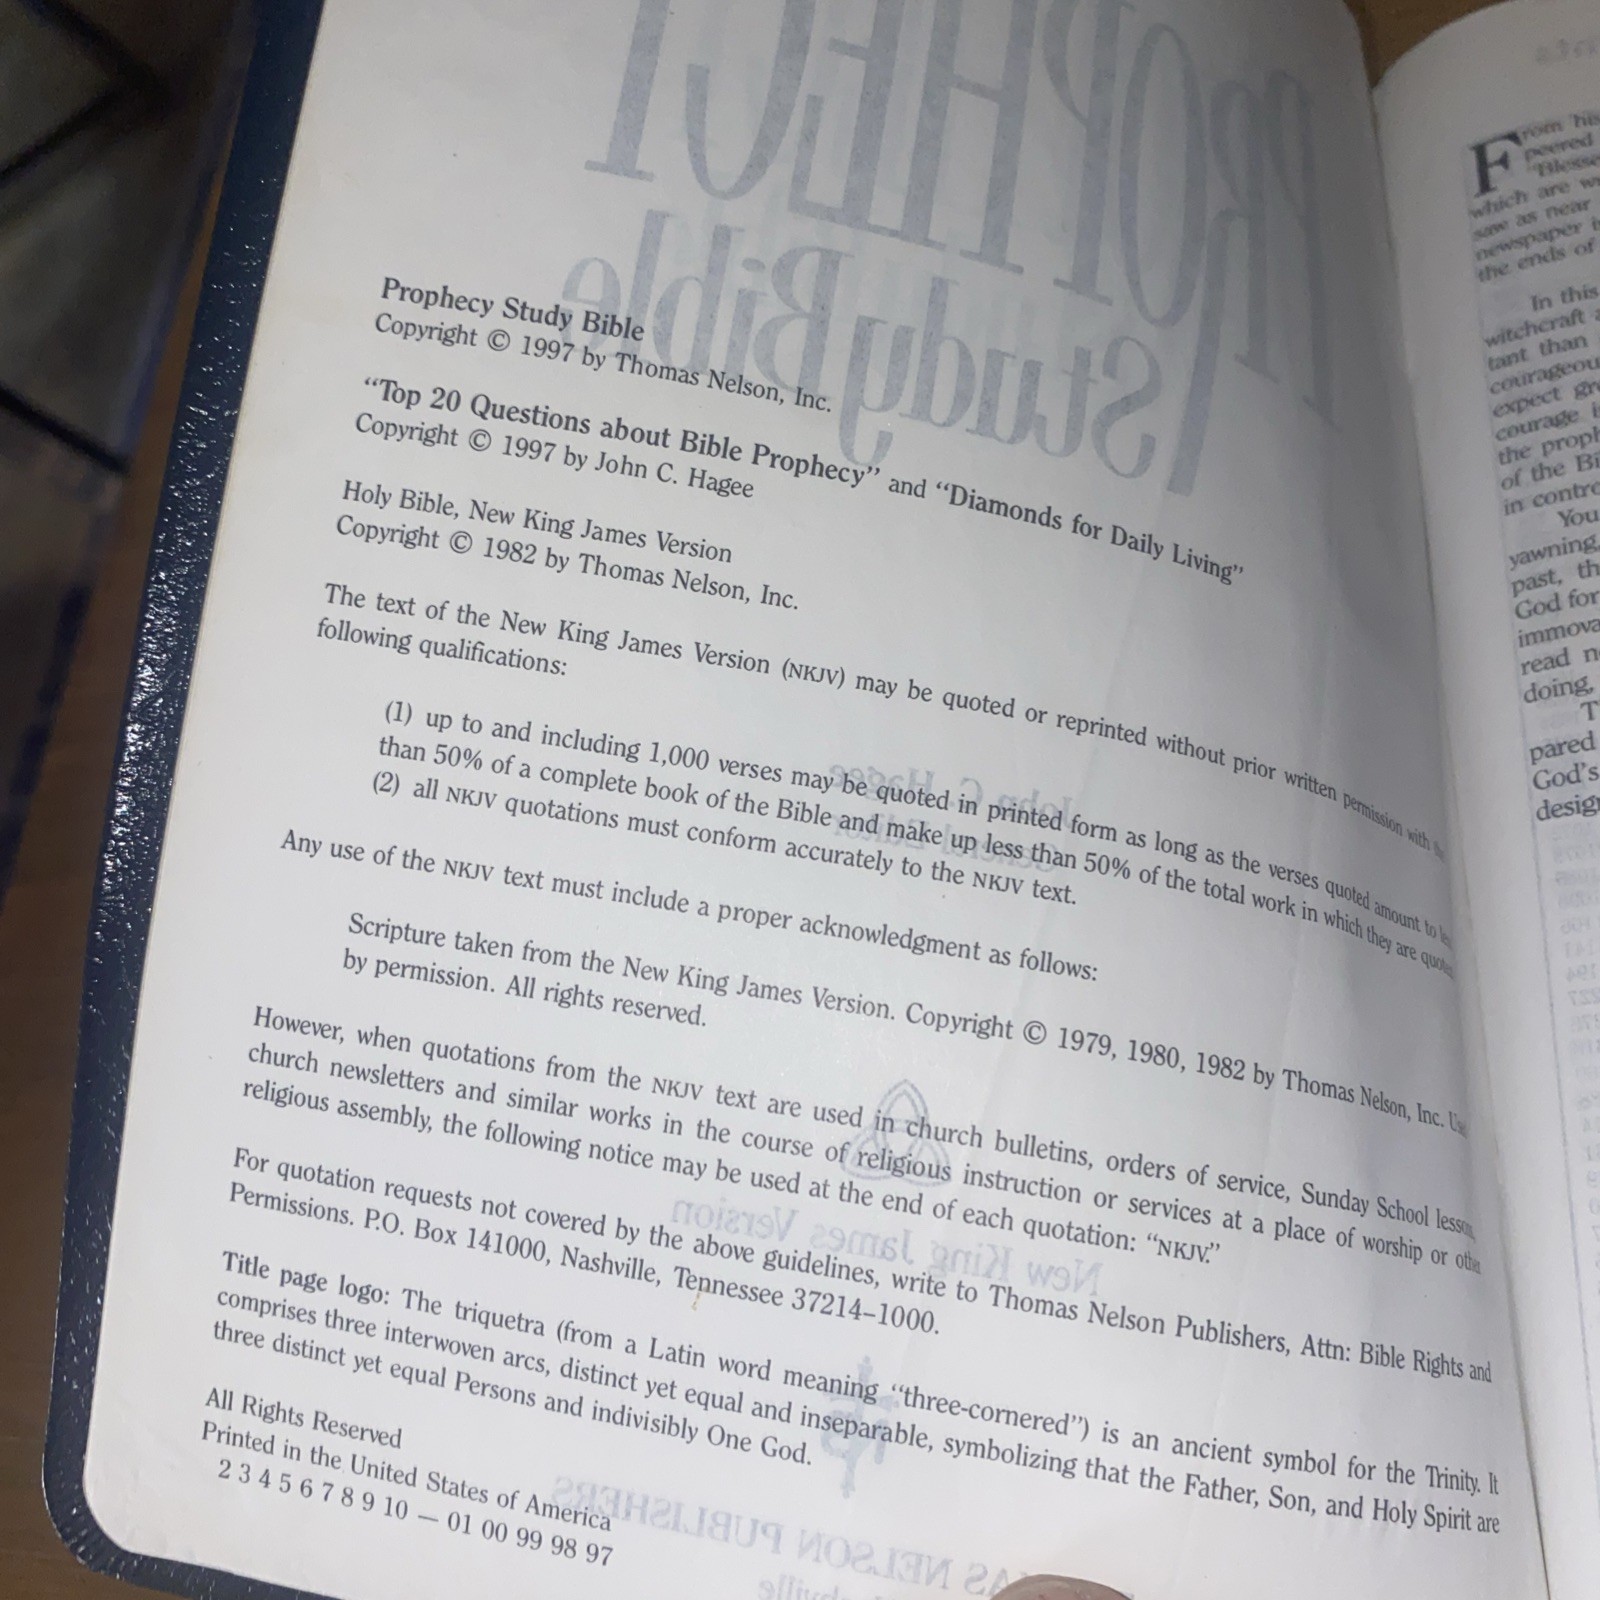 Prophecy Study Bible
Copyright © 1997 by Thomas Nelson, Inc.
“Top 20 Questions about Bible Prophecy” and “Diamonds for Daily Living”
Copyright © 1997 by John C. Hagee
Holy Bible, New King James Version
Copyright © 1982 by Thomas Nelson, Inc.
The text of the New King James Version (NKJV) may be quoted or reprinted without prior written permission with the
following qualifications:
(1) up to and including 1,000 verses may be quoted in printed form as long as the verses quoted amount to less
than 50% of a complete book of the Bible and make up less than 50% of the total work in which they are quoted
(2) all NKJV quotations must conform accurately to the NKJV text.
Any use of the NKJV text must include a proper acknowledgment as follows:
Scripture taken from the New King James Version. Copyright © 1979, 1980, 1982 by Thomas Nelson, Inc. Used
by permission. All rights reserved.
However, when quotations from the NKJV text are used in church bulletins, orders of service, Sunday School lessons,
church newsletters and similar works in the course of religious instruction or services at a place of worship or other
religious assembly, the following notice may be used at the end of each quotation: “NKJV.”
For quotation requests not covered by the above guidelines, write to Thomas Nelson Publishers, Attn: Bible Rights and
Permissions. P.O. Box 141000, Nashville, Tennessee 37214–1000.
Title page logo: The triquetra (from a Latin word meaning “three-cornered”) is an ancient symbol for the Trinity. It
comprises three interwoven arcs, distinct yet equal and inseparable, symbolizing that the Father, Son, and Holy Spirit are
three distinct yet equal Persons and indivisibly One God.
All Rights Reserved
Printed in the United States of America
2 3 4 5 6 7 8 9 10 — 01 00 99 98 97
From his
peered
"Blesse
which are
saw as near
newspaper
the ends of
In this
witchcraft
tant than
courageou
expect gre
courage
the proph
of the Bi
in contro
You
yawning,
past, th
God for
immova
read n
doing,
T
pared
God's
design